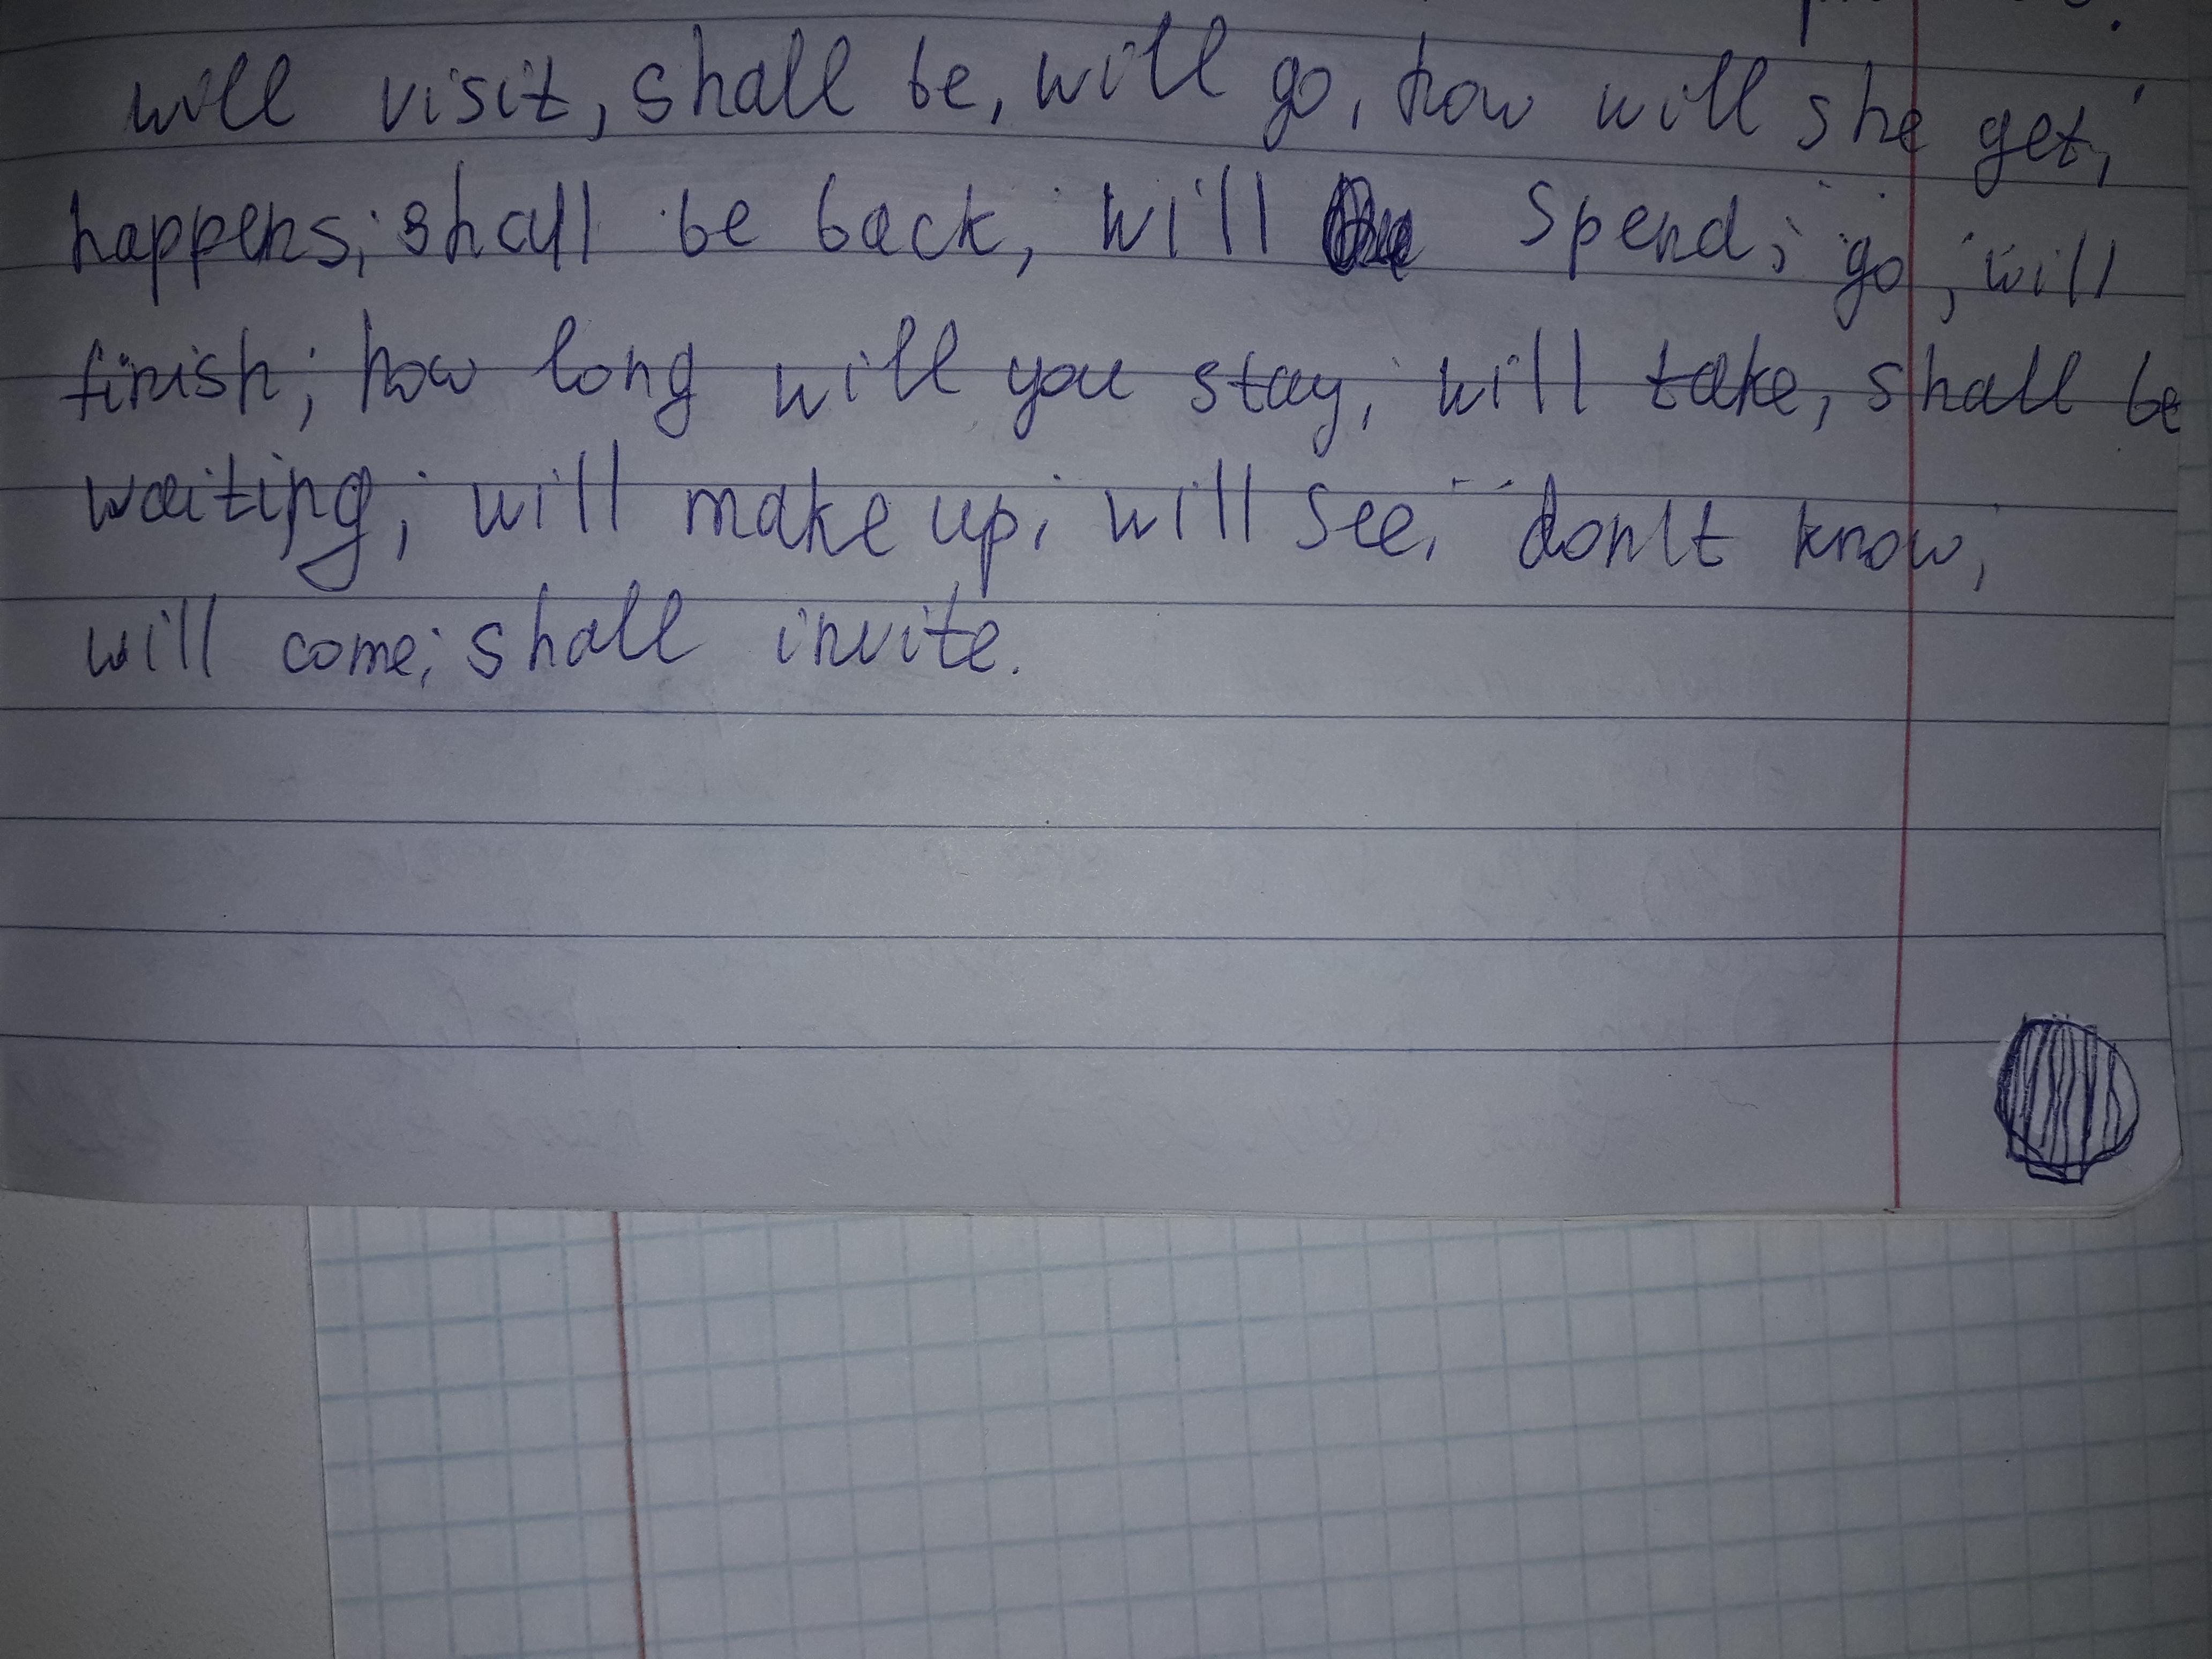 will visit, shall be, will go, how will she get,
happens; shall be back, will spend; go; will
finish; how long will you stay; will take, shall be
waiting; will make up; will see, don't know;
will come; shall invite.